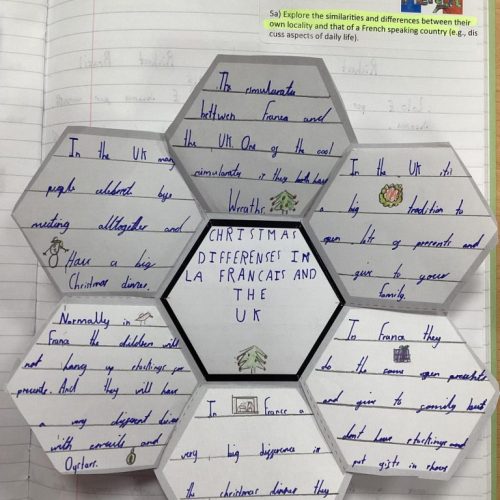 5a) Explore the similarities and differences between their
own locality and that of a French speaking country (e.g., dis
cuss aspects of daily life).
The simularate
bettwen France and
the UK. One of the cool
simularaty is they both have
Wreaths.
In the UK many
people celebrat bye
meeting alltogether and
Have a big
Christmas dinner.
In the UK
a big tradition to
open lots of presents and
give to your
family.
CHRISTMAS
DIFFERENSES IN
LA FRANCAIS AND
THE
UK
Normally in
France the children will
not hang up stockings for
presents. And they will have
a very different dinner
with and
Oysters.
In France they
do the same open
and give to family but
dont have stockings and
put gifts in shoes
In France a
very big difference is
the christmas dinner they